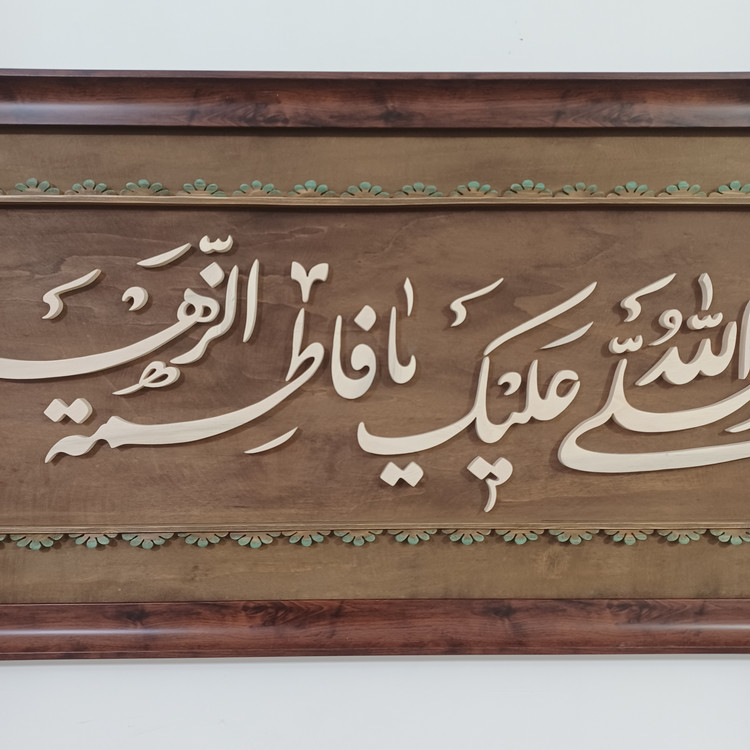 صلّی اللهُ علیکِ یا فاطمة الزّهرا